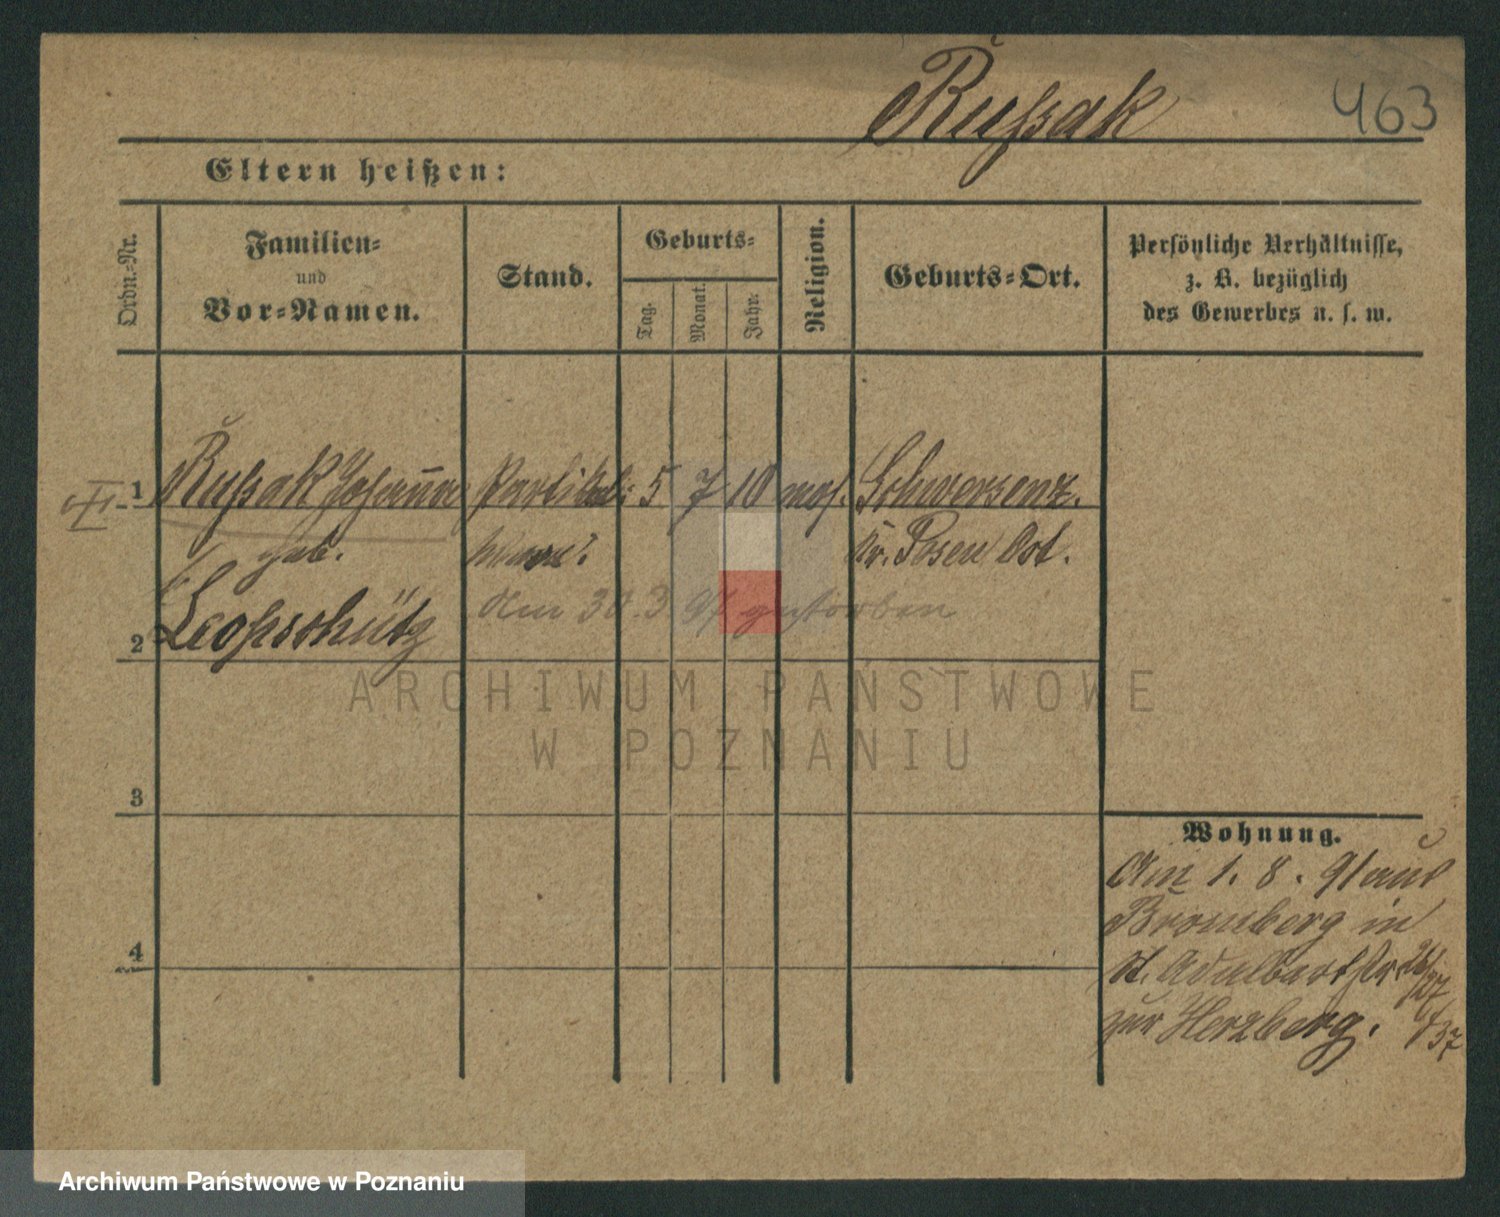 Rußak 463
Eltern heißen:
Ordn.-Nr.
Familien-
und
Vor-Namen.
Stand.
Geburts-
Tag.
Monat.
Jahr.
Religion.
Geburts-Ort.
Persönliche Verhältnisse,
z. B. bezüglich
des Gewerbes u. s. w.
1 Rußak Johanna 5 7 10 mos. Schwersenz.
geb. Kr. Posen Ost.
Am 30.3 gestorben
2 Leopschütz
ARCHIWUM PAŃSTWOWE
W POZNANIU
3
Wohnung.
Am 1. 8. 91 aus
Bromberg in
4
St. Adalbertstr 26/27
zur Herzberg.
Archiwum Państwowe w Poznaniu